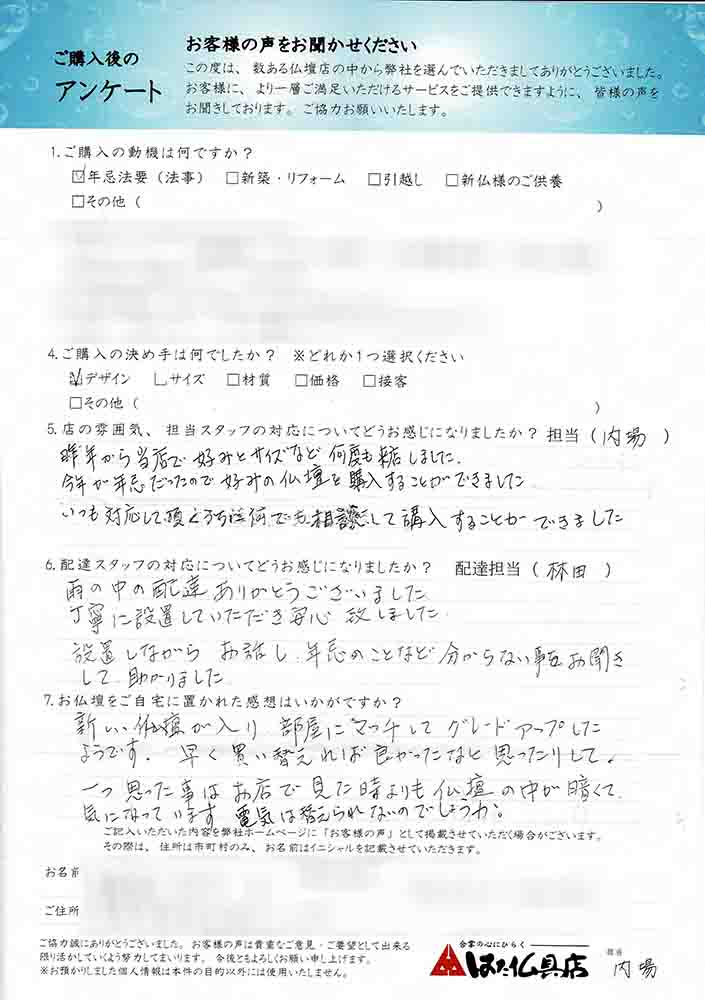 ご購入後の
アンケート
お客様の声をお聞かせください
この度は、数ある仏壇店の中から弊社を選んでいただきましてありがとうございました。
お客様に、より一層ご満足いただけるサービスをご提供できますように、皆様の声を
お聞きしております。ご協力お願いいたします。
1.ご購入の動機は何ですか？
☑年忌法要（法事） □新築・リフォーム □引越し □新仏様のご供養
□その他（ ）
4.ご購入の決め手は何でしたか？ ※どれか1つ選択ください
☑デザイン □サイズ □材質 □価格 □接客
□その他（ ）
5.店の雰囲気、担当スタッフの対応についてどうお感じになりましたか？ 担当（内場）
昨年から当店で好みとサイズなど何度も来店しました.
今年が年忌だったので好みの仏壇を購入することができました
いつも対応して頂くうちに何でも相談して購入することができました
6.配達スタッフの対応についてどうお感じになりましたか？ 配達担当（林田）
雨の中の配達ありがとうございました
丁寧に設置していただき安心致しました.
設置しながらお話し.年忌のことなど分からない事をお聞き
して.助かりました
7.お仏壇をご自宅に置かれた感想はいかがですか？
新しい仏壇が入り部屋にマッチしてグレードアップした
ようです. 早く買い替えれば良かったなと思ったりして。
一つ思った事はお店で見た時よりも仏壇の中が暗くて.
気になっています 電気は替えられないのでしょうか.
ご記入いただいた内容を弊社ホームページに「お客様の声」として掲載させていただく場合がございます。
その際は、住所は市町村のみ、お名前はイニシャルを記載させていただきます。
お名前
ご住所
ご協力誠にありがとうございました。お客様の声は貴重なご意見・ご要望として出来る
限り活かしていくよう努力してまいります。今後ともよろしくお願い申し上げます。
※お預かりしました個人情報は本件の目的以外には使用いたしません。
合掌の心にひらく
はた仏具店
担当 内場